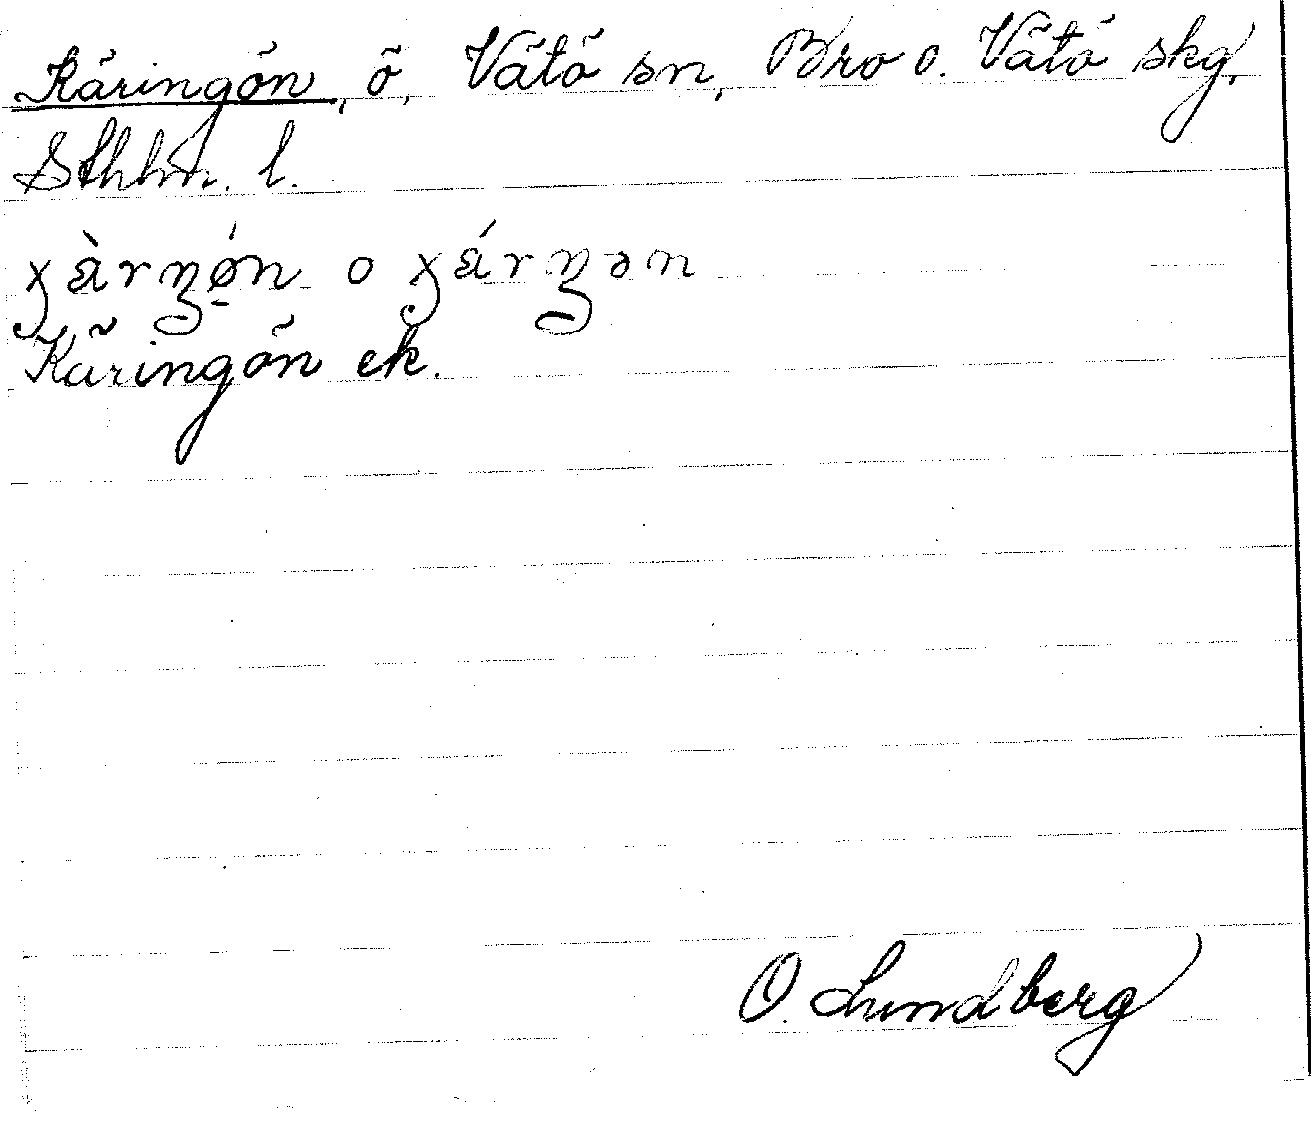 Käringön, ö, Vätö sn, Bro o. Vätö skg,
Sthlm. l.
o
Käringön ek.
O. Lundberg